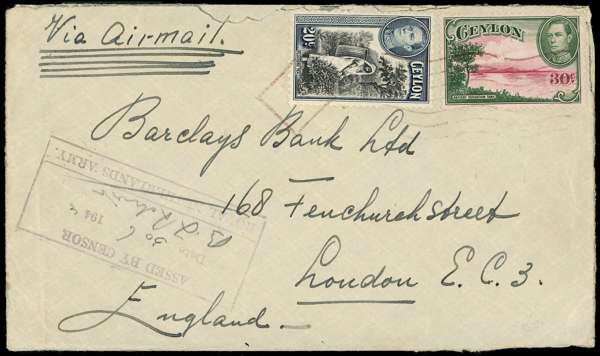 Via Air-mail.
20c
CEYLON
CEYLON
30c
Barclays Bank Ltd
168 Fenchurch street
London E.C.3.
England.
ASSED BY CENSOR
Date 30/6 194
NETHERLANDS ARMY.